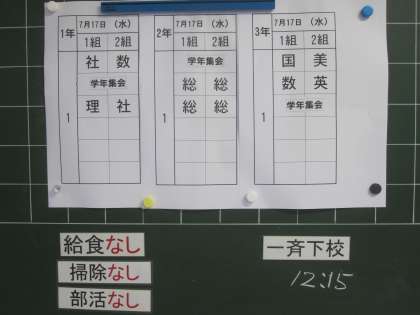 1年 7月17日 (水)
1組 2組
社 数
学年集会
1 理 社
2年 7月17日 (水)
1組 2組
学年集会
総 総
1 総 総
3年 7月17日 (水)
1組 2組
国 美
数 英
学年集会
1
給食なし
掃除なし
部活なし
一斉下校
12:15